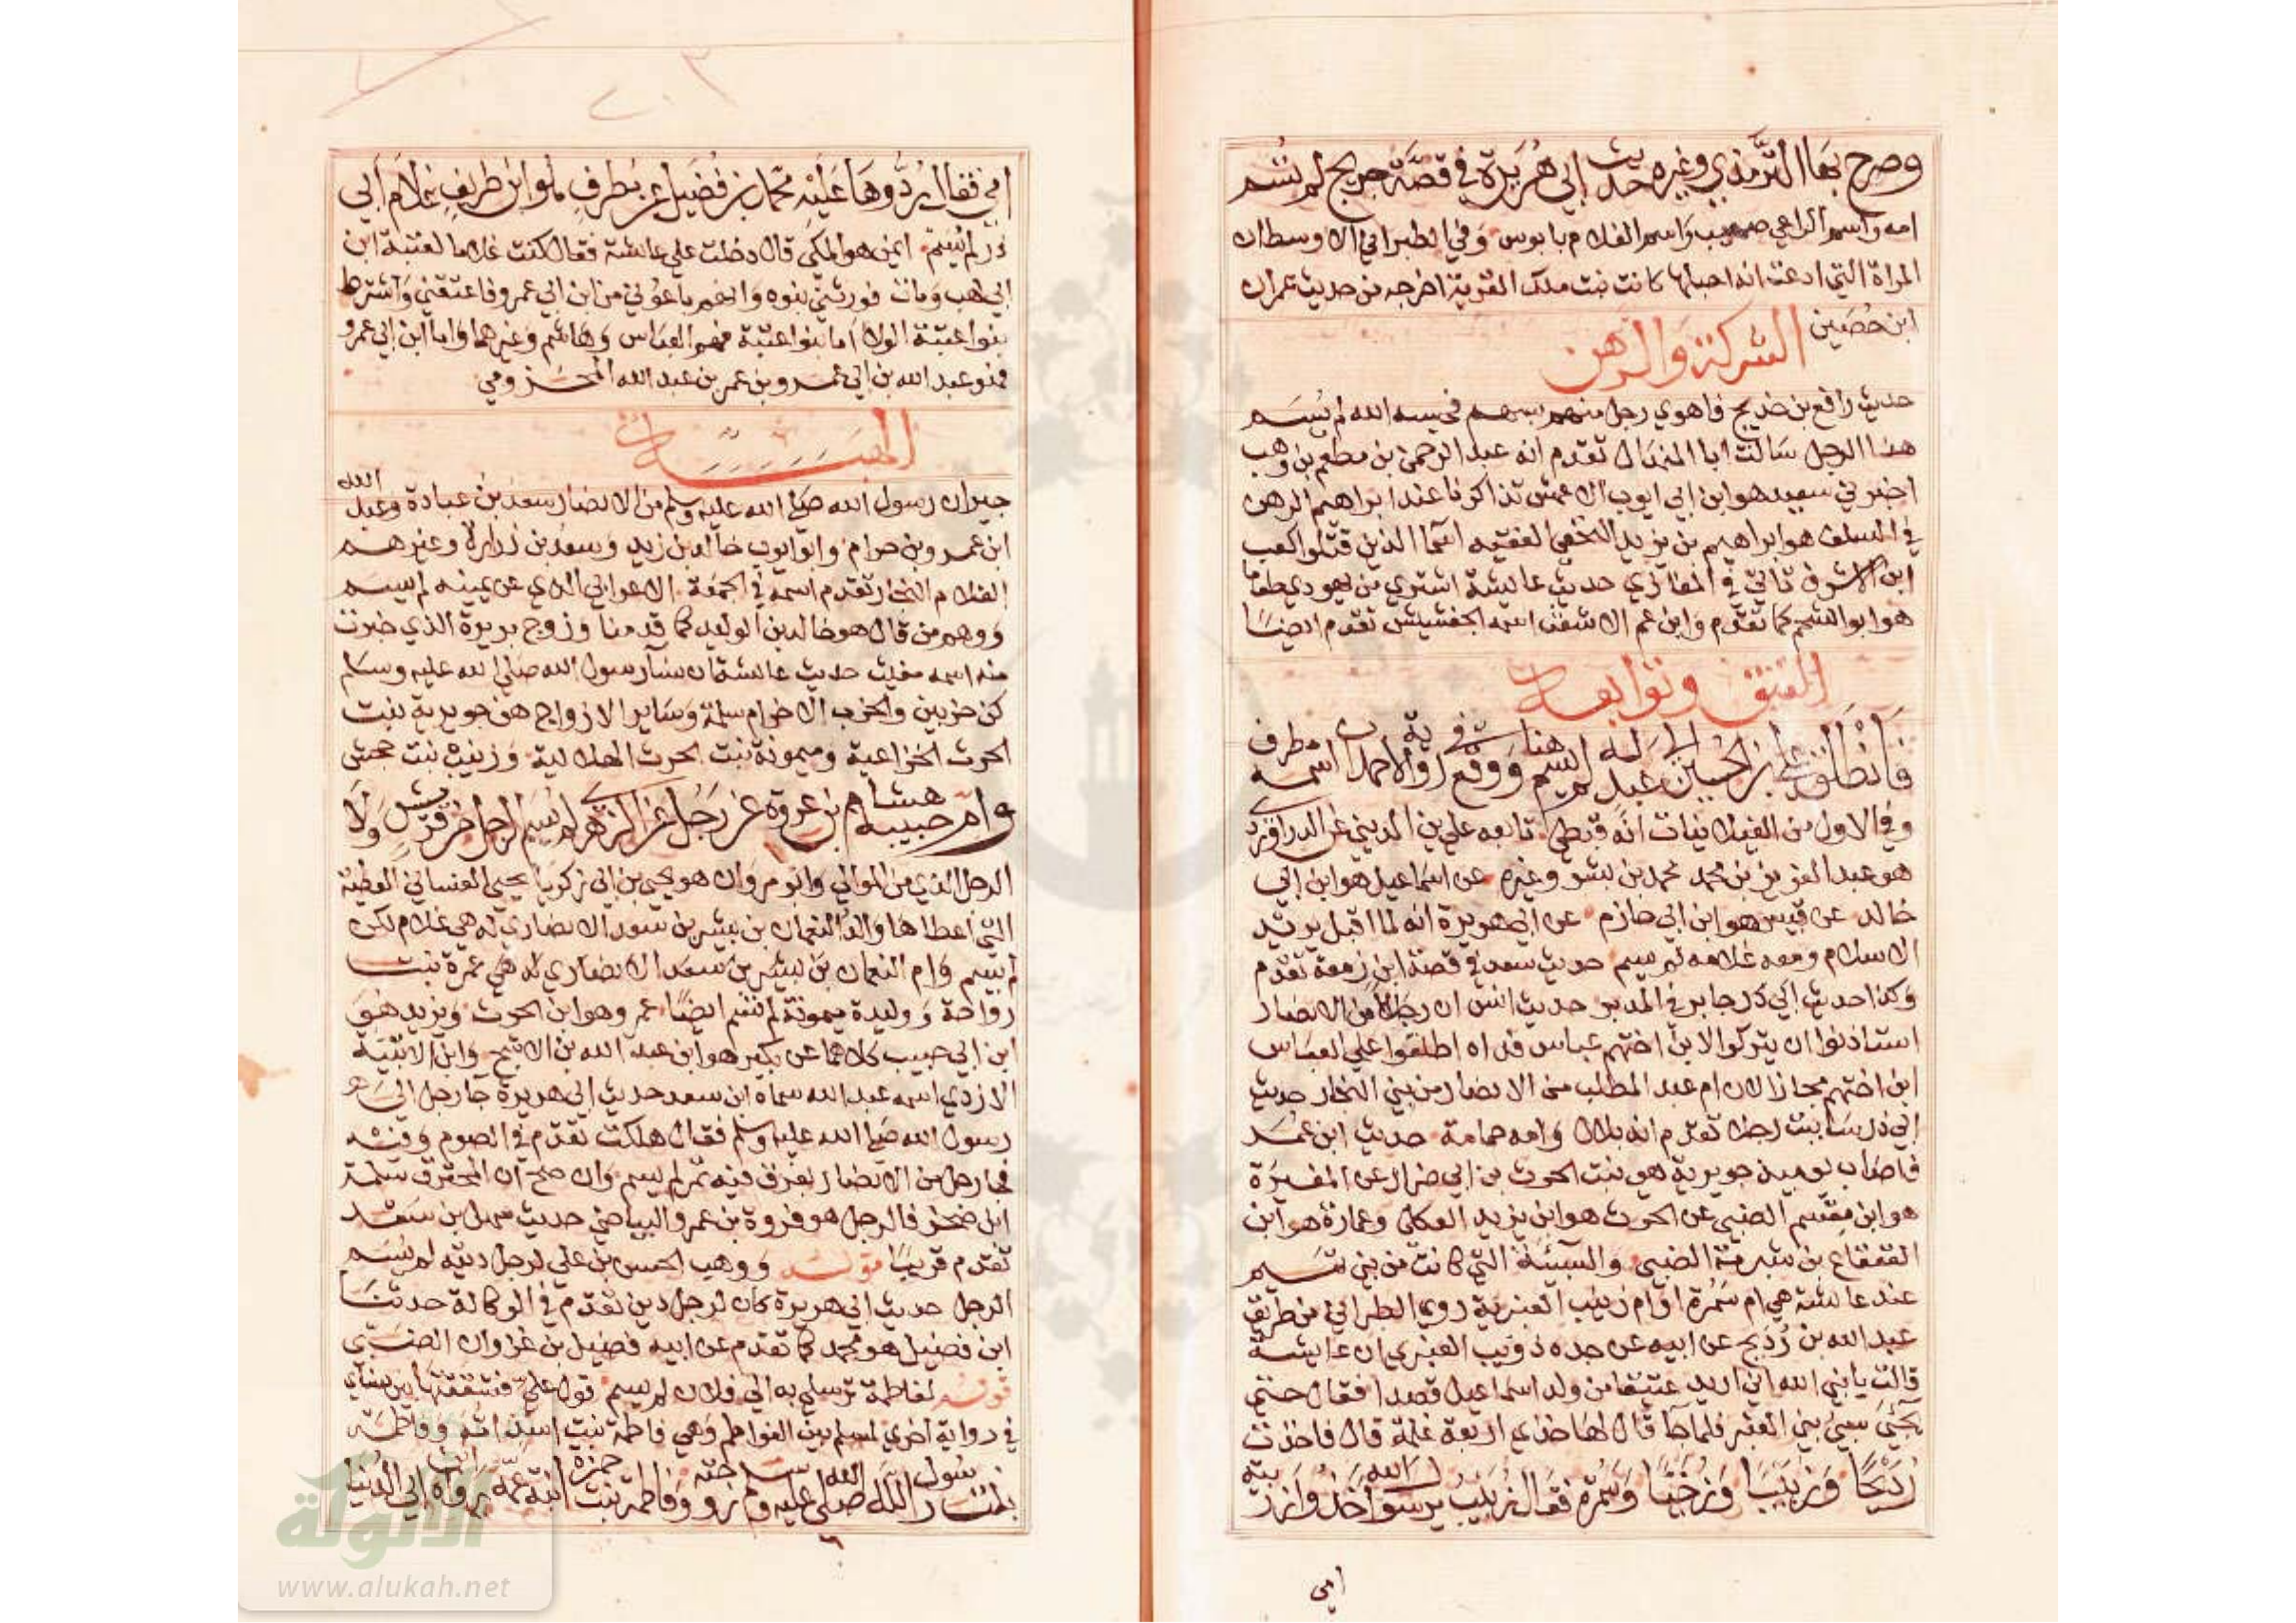 وصرح بها الترمذي وغيره حديث ابي هريرة في قصة جريج لم تسم
امه واسم الراعي صهيب واسم الغلام بابوس وفي الطبراني الاوسط ان
المراة التي ادعت انه احبلها كانت بنت ملك القرية اخرجه من حديث عمران
ابن حصين الشركة والرهن
حديث رافع بن خديج فاهوي رجل منهم بسهم فحبسه الله لم يسم
هذا الرجل سالت ابا المنهال تقدم انه عبد الرحمن بن مطعم بن وهب
اخبرني سعيد هو ابن ابي ايوب الاعمش تذاكرنا عند ابراهيم الرهن
في السلف هو ابراهيم بن يزيد النخعي الفقيه اسما الذين قتلوا كعب
ابن الاشرف تاتي في المغازي حديث عائشة اشتري من يهودي طعاما
هو ابو الشحم كما تقدم وابن عم الاشعث اسمه الجفشيش تقدم ايضا
العتق وتوابعه
فانطلق علي بن الحسين الي عبد له لم يسم ووقع هنا في رواية لاحمد ان اسمه مطرف
وفي الاول من الغيلانيات انه قبطي تابعه علي بن المديني عن الدراوردي
هو عبد العزيز بن محمد محمد بن بشر وغيره عن اسماعيل هو ابن ابي
خالد عن قيس هو ابن ابي حازم عن ابي هريرة انه لما اقبل يريد
الاسلام ومعه غلامه لم يسم حديث سعد في قصة ابن زمعة تقدم
وكذا حديث جابر في المدبر حديث انس ان رجالا من الانصار
استاذنوا ان يتركوا لابن اختهم عباس فداه اطلقوا علي العباس
ابن اختهم مجازا لان ام عبد المطلب من الانصار من بني النجار حديث
ابي ذر ساببت رجلا تقدم انه بلال وامه حمامة حديث ابن عمر
فاصاب يوميذ جويرية هي بنت الحرث بن ابي ضرار عن المغيرة
هو ابن مقسم الضبي عن الحرث هو ابن يزيد العكلي وعمارة هو ابن
القعقاع بن شبرمة الضبي والسبية التي كانت من بني تميم
عند عائشة هي ام سمرة او ام زبيب العنبرية روي الطبراني من طريق
عبد الله بن رديح عن ابيه عن جده ذويب العنبري ان عايشة
قالت يا نبي الله اني اريد عتيقا من ولد اسماعيل قصدا فقال حتي
يجيئ سبي بني العنبر فلما جا قال لها خذي اربعة غلمة قال فاخذت
رديحا وزبيبا وزخيا وسمرة فقال زبيب يا رسول الله اخذوا زربية
امي
امي فقال ردوها عليه محمد بن فضيل عن مطرف هو ابن طريف غلام ابي
ذر لم يسم ايمن هو المكي قال دخلت علي عائشة فقال كنت غلاما لعتبة ابن
ابي لهب ومات فورثني بنوه وانهم باعوني من ابن ابي عمرو فاعتقني واشترط
بنوا عتبة الولا اما بنوا عتبة فهم العباس وهاشم وغيرهما واما ابن ابي عمرو
فهو عبد الله بن ابي عمرو بن عمر بن عبد الله المخزومي
الهبات
جيران رسول الله صلي الله عليه وسلم من الانصار سعد بن عبادة وعبد الله
ابن عمرو بن حرام وابو ايوب خالد بن زيد وسعد بن زرارة وغيرهم
الغلام النجار تقدم اسمه في الجمعة الاعرابي الذي عن يمينه لم يسم
ووهم من قال هو خالد بن الوليد كما قدمنا وزوج بريرة الذي خيرت
منه اسمه مغيث حديث عائشة ان نسا رسول الله صلي الله عليه وسلم
كن حزبين والحزب الاخر ام سلمة وساير الازواج هن جويرية بنت
الحرث الخزاعية وميمونة بنت الحرث الهلالية وزينب بنت جحش
وام حبيبة هشام بن عروة عن رجل عن الزهري لم يسم الرجل من قريش ولا
الرجل الذي من الموالي وابو مروان هو يحيي بن ابي زكريا يحيي الغساني العطية
التي اعطاها والد النعمان بن بشير بن سعد الانصاري له هي غلام لكن
لم يسم وام النعمان بن بشير بن سعد الانصاري له هي عمرة بنت
رواحة ووليدة ميمونة لم تسم ايضا عمرو هو ابن الحرث ويزيد هو
ابن ابي حبيب كلاهما عن بكير هو ابن عبد الله بن الاشج وابن الاتبية
الازدي اسمه عبد الله سماه ابن سعد حديث ابي هريرة جا رجل الي
رسول الله صلي الله عليه وسلم فقال هلكت تقدم في الصوم وفيه
فجا رجل من الانصار بعرق فيه تمر لم يسم وان صح ان المحترق سلمة
ابن صخر فالرجل هو فروة بن عمرو البياضي حديث سهل بن سعد
تقدم قريبا قوله ووهب الحسن بن علي لرجل دينه لم يسم
الرجل حديث ابي هريرة كان لرجل دين تقدم في الوكالة حدثنا
ابن فضيل هو محمد كما تقدم عن ابيه فضيل بن غزوان الضبي
قوله لفاطمة ترسلي به الي فلان لم يسم قول علي فشققتها بين نسائي
في رواية اخري لمسلم بين الفواطم وهي فاطمة بنت اسد امه وفاطمة
بنت رسول الله صلي الله عليه وسلم زوجته وفاطمة بنت حمزة ابنة عمه رواه ابن ابي الدنيا
الألوكة
www.alukah.net